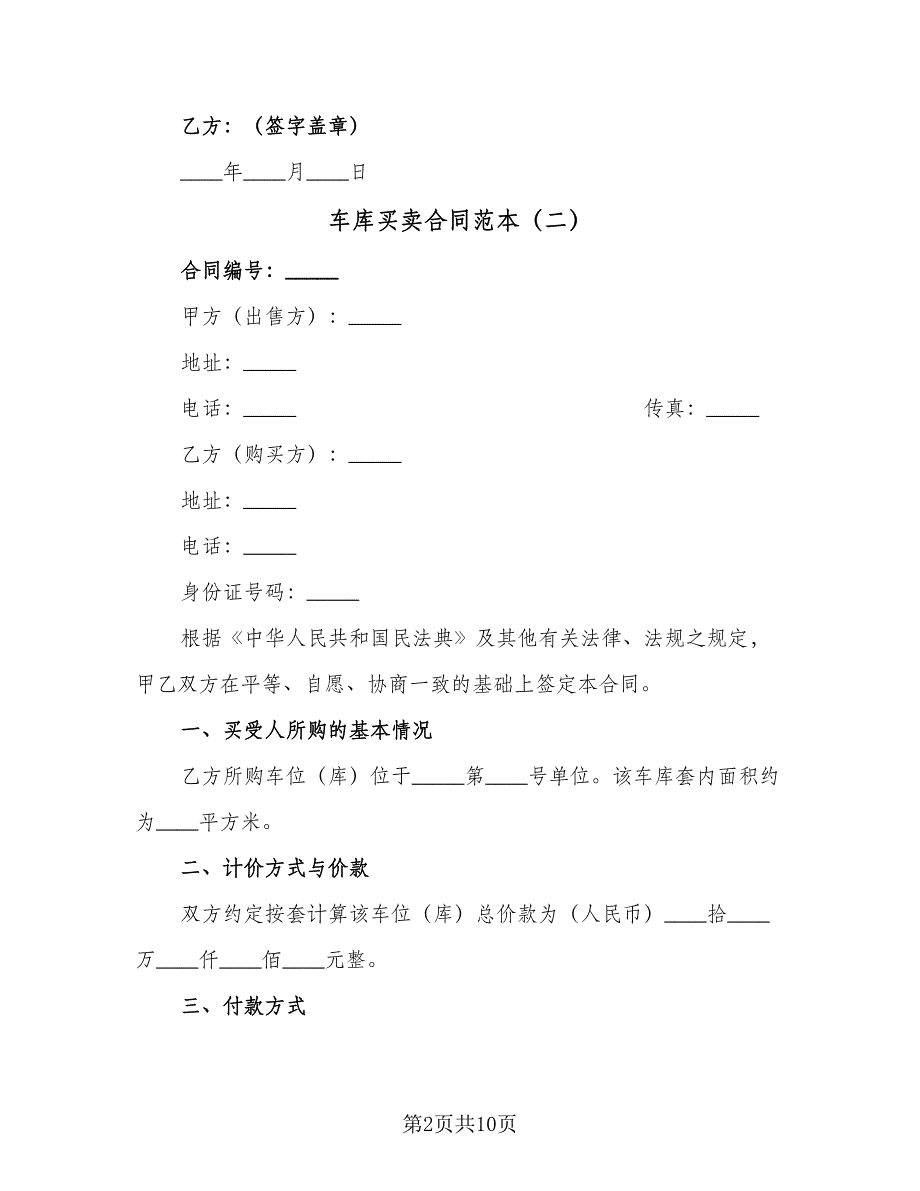 乙方：（签字盖章）
____年____月____日
车库买卖合同范本（二）
合同编号：_____
甲方（出售方）：_____
地址：_____
电话：_____ 传真：_____
乙方（购买方）：_____
地址：_____
电话：_____
身份证号码：_____
根据《中华人民共和国民法典》及其他有关法律、法规之规定，
甲乙双方在平等、自愿、协商一致的基础上签定本合同。
一、买受人所购的基本情况
乙方所购车位（库）位于_____第____号单位。该车库套内面积约
为____平方米。
二、计价方式与价款
双方约定按套计算该车位（库）总价款为（人民币）____拾____
万____仟____佰____元整。
三、付款方式
第2页共10页